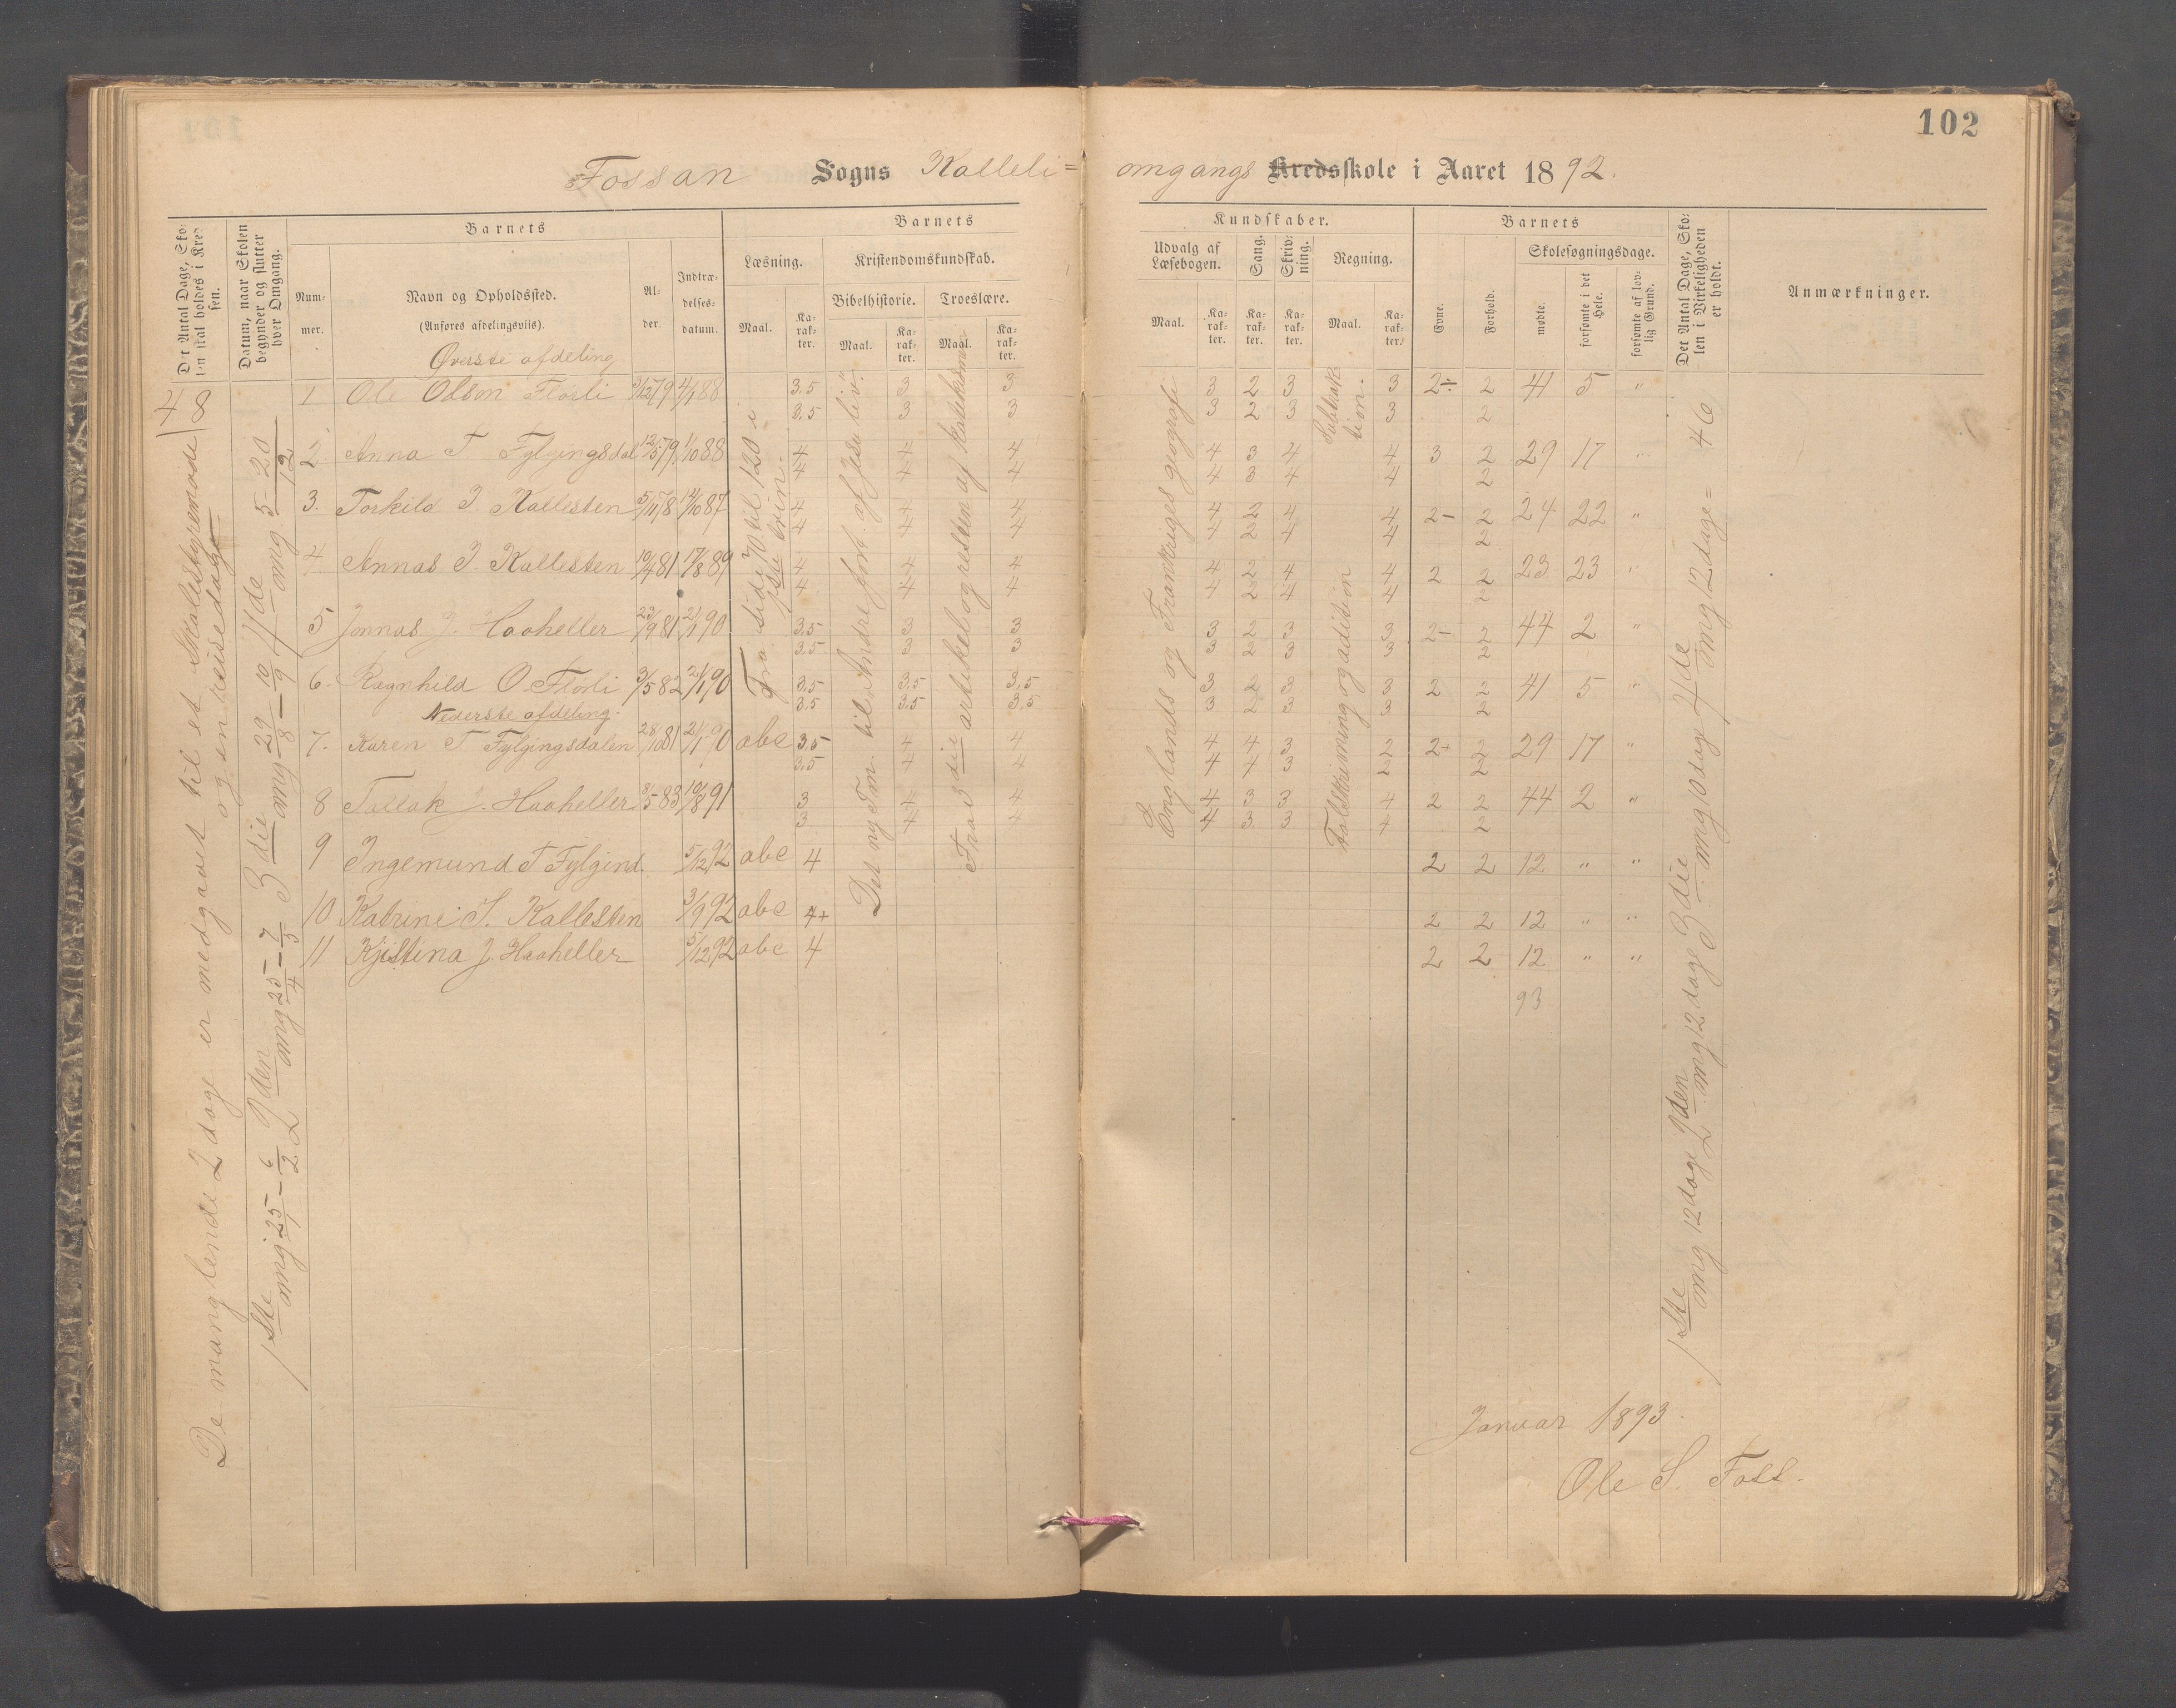 102
Fossan Sogns Kalleli=
omgangs Kredsskole i Aaret 1892.
Det Antal Dage, Skolen skal holdes i Kredsen.
Datum, naar Skolen begynder og slutter hver Omgang.
Barnets
Nummer.
Navn og Opholdssted.
(Anføres afdelingsviis).
Alder.
Indtrædelsesdatum.
Barnets
Læsning.
Kristendomskundskab.
Bibelhistorie.
Troeslære.
Maal.
Karakter.
Maal.
Karakter.
Maal.
Karakter.
Kundskaber.
Udvalg af Læsebogen.
Sang.
Skrivning.
Regning.
Maal.
Karakter.
Karakter.
Karakter.
Maal.
Karakter.
Barnets
Evne.
Forhold.
Skolesøgningsdage.
mødte.
forsømte i det Hele.
forsømte af lovlig Grund.
Det Antal Dage, Skolen i Virkeligheden er holdt.
Anmærkninger.
Øverste afdeling
1 Ole Olson Flörli 3/12 79 4/1 88 3.5 3 3 3 2 3 3 2÷ 2 41 5 "
3.5 3 3 3 2 3 3 2
2. Anna T Fylgingsdal 12/5 79 1/10 88 4 4 4 4 3 4 4 3 2 29 17 "
4 4 4 4 3 4 4 2
3. Torkild J. Kallesten 5/11 78 14/10 87 4 4 4 4 2 4 4 2- 2 24 22 "
4 4 4 4 2 4 4 2
4 Annas J. Kallesten 10/4 81 17/8 89 4 4 4 4 2 4 4 2 2 23 23 "
4 4 4 4 2 4 4 2
5, Jonnas J. Haaheller 23/9 81 21/1 90 3.5 3 3 3 2 3 3 2- 2 44 2 "
3.5 3 3 3 2 3 3 2
6. Ragnhild O. Flörli 3/5 82 21/1 90 3.5 3.5 3.5 3 2 3 3 2 2 41 5 "
3.5 3.5 3.5 3 2 3 3 2
Nederste afdeling.
7. Karen T Fylgingsdalen 28/10 81 21/1 90 abc 3.5 4 4 4 4 3 2 2+ 2 29 17 "
3.5 4 4 4 4 3 2 2
8 Tallak J. Haaheller 8/5 83 10/8 91 3 4 4 4 3 3 4 2 2 44 2 "
3 4 4 4 3 3 4 2
9 Ingemund T Fylgind. 5/12 92 abc 4 2 2 12 " "
10 Katrine S. Kallesten 3/9 92 abc 4+ 2 2 12 " "
11 Kjistina J. Haaheller 5/12 92 abc 4 2 2 12 " "
93
48
De manglende 2 dage er medgaaet til et Skolestyremøde
og en reisedage
1ste omg 25/1 - 6/2 2den omg 25/4 - 7/5 3die omg 29/8 - 10/9 4de omg. 5 - 20/12
Fra side 70 til 120 i
1ste trin.
Det nye Tm. til Andre fort. af Jesu liv.
Fra 3die artikel og resten af katekismen
Englands og Frankriges geografi
Subtraktion.
Talskrivning og adition
1ste omg 12 dage 2den omg 12 dage 3die omg 10 dag 4de omg 12 dage = 46
Januar 1893.
Ole S. Foss.